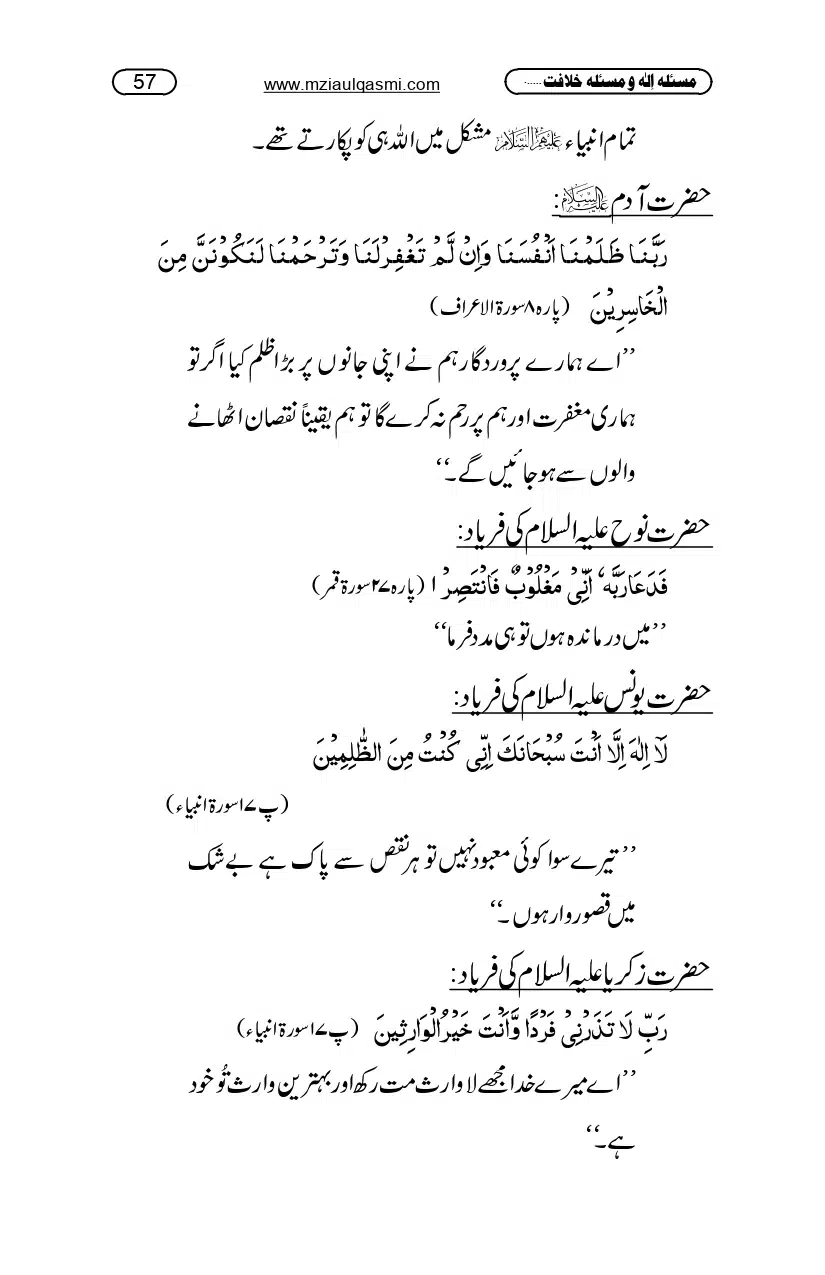 مسئلہ اِلٰہ و مسئلہ خلافت ...... www.mziaulqasmi.com 57
تمام انبیاء علیہم السلام مشکل میں اللہ ہی کو پکارتے تھے۔
حضرت آدم علیہ السلام:
رَبَّنَا ظَلَمْنَا اَنْفُسَنَا وَاِنْ لَّمْ تَغْفِرْلَنَا وَتَرْحَمْنَا لَنَكُوْنَنَّ مِنَ
الْخَاسِرِيْنَ (پارہ ۸ سورۃ الاعراف)
’’اے ہمارے پروردگار ہم نے اپنی جانوں پر بڑا ظلم کیا اگر تو
ہماری مغفرت اور ہم پر رحم نہ کرے گا تو ہم یقیناً نقصان اٹھانے
والوں سے ہو جائیں گے۔‘‘
حضرت نوح علیہ السلام کی فریاد:
فَدَعَا رَبَّهٗ اَنِّىْ مَغْلُوْبٌ فَانْتَصِرْ ا (پارہ ۲۷ سورۃ قمر)
’’میں درماندہ ہوں تو ہی مدد فرما‘‘
حضرت یونس علیہ السلام کی فریاد:
لَآ اِلٰهَ اِلَّا اَنْتَ سُبْحَانَكَ اِنِّى كُنْتُ مِنَ الظّٰلِمِيْنَ
(پ ۱۷ سورۃ انبیاء)
’’تیرے سوا کوئی معبود نہیں تو ہر نقص سے پاک ہے بے شک
میں قصوروار ہوں۔‘‘
حضرت زکریا علیہ السلام کی فریاد:
رَبِّ لَا تَذَرْنِىْ فَرْدًا وَّاَنْتَ خَيْرُ الْوَارِثِينَ (پ ۱۷ سورۃ انبیاء)
’’اے میرے خدا مجھے لاوارث مت رکھ اور بہترین وارث تُو خود
ہے۔‘‘